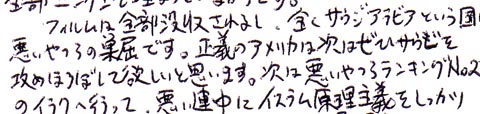 フィルムは全部没収されるし、全くサウジアラビアという国
悪いやつらの巣窟です。正義のアメリカは次はぜひサウジを
攻めほろぼして欲しいと思います。次は悪いやつらランキングNo.2
のイラクへ行って、悪い連中にイスラム原理主義をしっかり